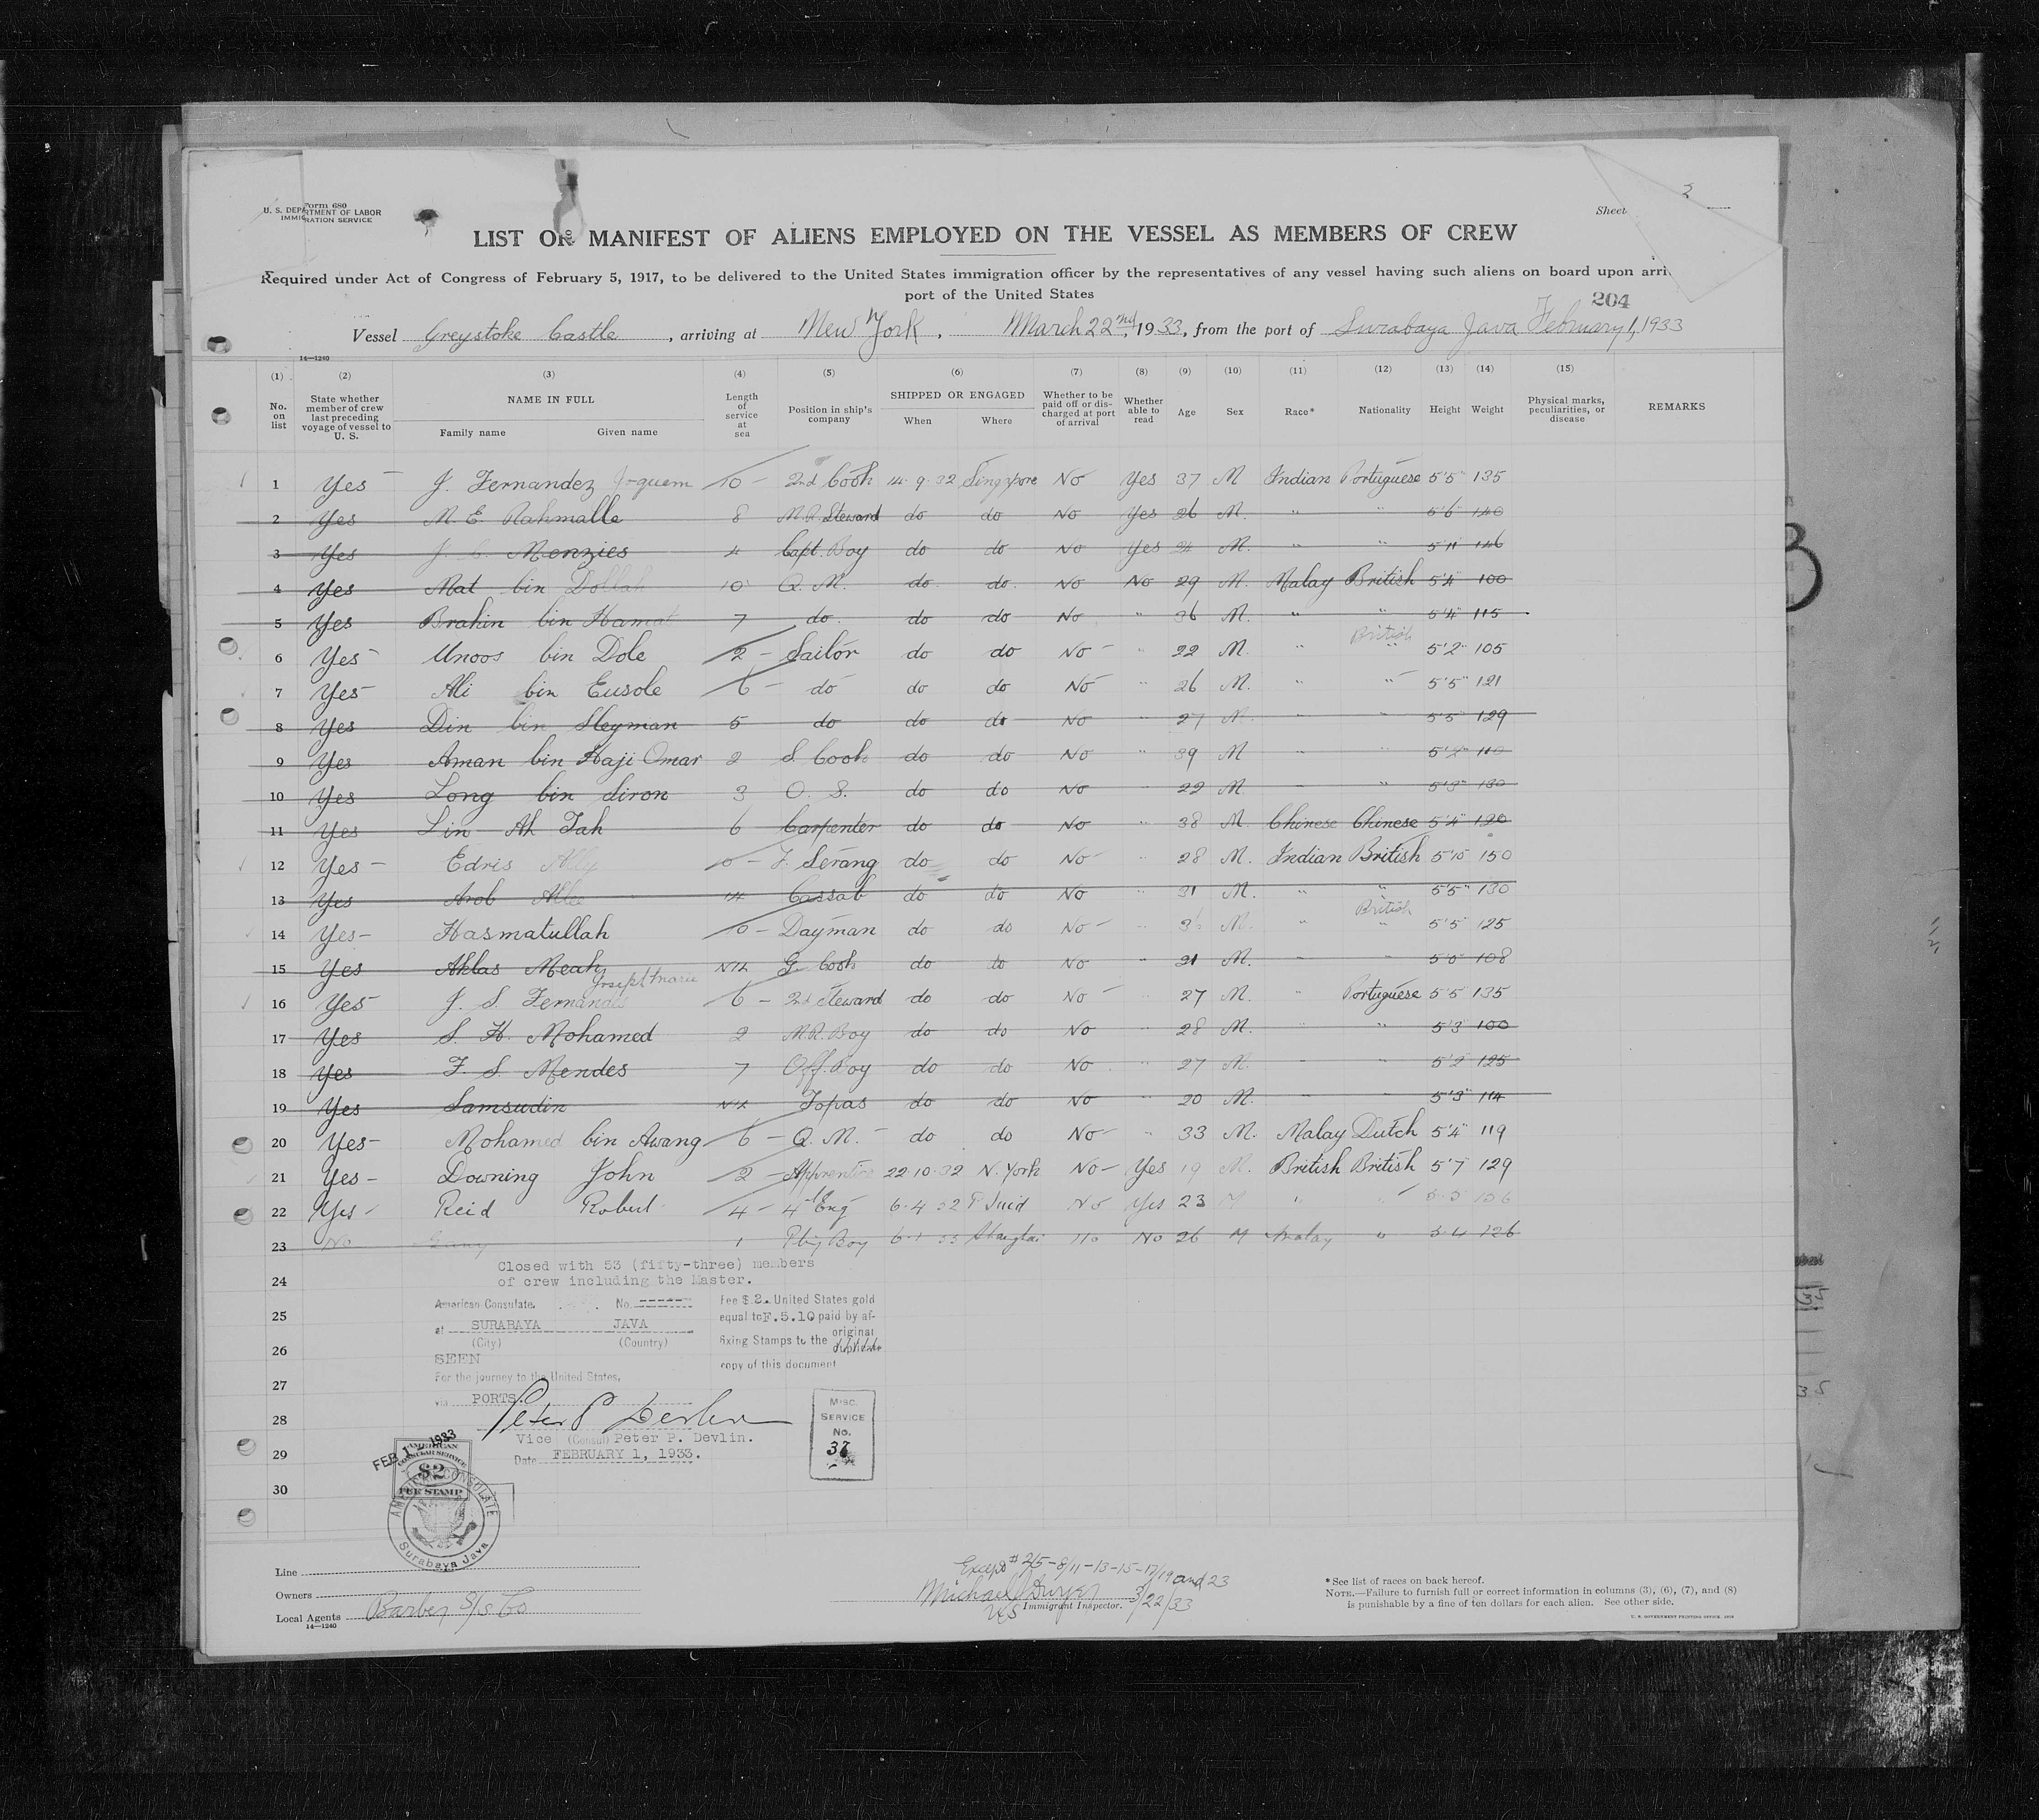 Form 680
U. S. DEPARTMENT OF LABOR
IMMIGRATION SERVICE
Sheet
LIST OR MANIFEST OF ALIENS EMPLOYED ON THE VESSEL AS MEMBERS OF CREW
Required under Act of Congress of February 5, 1917, to be delivered to the United States immigration officer by the representatives of any vessel having such aliens on board upon arri
port of the United States
204
Vessel Greystoke Castle, arriving at New York, March 22nd, 1933, from the port of Surabaya Java February 1, 1933
14—1240
(1) (2) (3) (4) (5) (6) (7) (8) (9) (10) (11) (12) (13) (14) (15)
No. on list State whether member of crew last preceding voyage of vessel to U. S. NAME IN FULL Family name Given name Length of service at sea Position in ship's company SHIPPED OR ENGAGED When Where Whether to be paid off or discharged at port of arrival Whether able to read Age Sex Race* Nationality Height Weight Physical marks, peculiarities, or disease REMARKS
1 Yes J. Fernandez 10 2nd Cook 14.9.32 Singapore No Yes 37 M Indian Portuguese 5'5" 135
2 Yes M. E. Rahmalle 8 M.R. Steward do do No Yes 26 M. " " 5'6" 140
3 Yes Menzies 4 Capt. Boy do do No Yes M. " " 5'11" 146
4 Yes Mat bin Dollah 10 Q. M. do do No No 29 M. Malay British 5'4" 100
5 Yes Brahin bin Hamat 7 do do do No " 36 M. " " 5'4" 115
British
6 Yes Unoos bin Dole 2 Sailor do do No " 22 M. " " 5'2" 105
7 Yes Ali bin Eusole 6 do do do No " 26 M. " " 5'5" 121
8 Yes Din bin Sleyman 5 do do do No " 27 M. " " 5'5" 129
9 Yes Aman bin Haji Omar 2 S. Cook do do No " 39 M " " 5'2" 110
10 Yes Long bin Siron 3 O. S. do do No " 22 M " " 5'3" 130
11 Yes Lin Ah Tah 6 Carpenter do do No " 38 M. Chinese Chinese 5'4" 120
12 Yes Edris Ally 10 F. Serang do do No " 28 M. Indian British 5'10 150
13 Yes Arob Allee 14 Cassab do do No " 31 M. " " 5'5" 130
British
14 Yes Hasmatullah 10 Dayman do do No " M. " " 5'5" 125
15 Yes Aklas Meah Nil G. Cook do do No " 21 M. " " 5'0" 108
Joseph Marie
16 Yes J. S. Fernandes 6 2nd Steward do do No " 27 M. " Portuguese 5'5 135
17 Yes S. H. Mohamed 2 M.R. Boy do do No " 28 M. " " 5'3" 100
18 Yes F. S. Mendes 7 Off. Boy do do No " 27 M. " " 5'2" 125
19 Yes Samsudin Nil Topas do do No " 20 M. " " 5'3" 114
20 Yes Mohamed bin Awang 6 Q. M. do do No " 33 M. Malay Dutch 5'4" 119
21 Yes Downing John 2 Apprentice 22.10.32 N. York No Yes 19 M. British British 5'7 129
22 Yes Reid Robert 4 4th Eng 6.4.32 No Yes 23 M " "
23 No 1 Boy Shanghai No No 26 M Malay " 5.4 126
Closed with 53 (fifty-three) members
of crew including the Master.
24
American Consulate. No. ------
Fee $.2. United States gold
25
equal to F.5.10 paid by af-
at SURABAYA JAVA
(City) (Country)
original
fixing Stamps to the duplicate
26
copy of this document
SEEN
For the journey to the United States,
27
via PORTS.
28
Peter P Devlin
Vice (Consul) Peter P. Devlin.
29
Date FEBRUARY 1, 1933.
30
MISC.
SERVICE
No.
37
FEB 1 - 1933
AMERICAN
CONSULAR SERVICE
$2
FEE STAMP
AMERICAN CONSULATE
Surabaya Java
Line
Owners
Local Agents Barber S/S Co
14—1240
Except # 2/5-8/11-13-15-17/19 and 23
Michael Dwyer 3/22/33
US Immigrant Inspector.
* See list of races on back hereof.
NOTE.—Failure to furnish full or correct information in columns (3), (6), (7), and (8)
is punishable by a fine of ten dollars for each alien. See other side.
U. S. GOVERNMENT PRINTING OFFICE